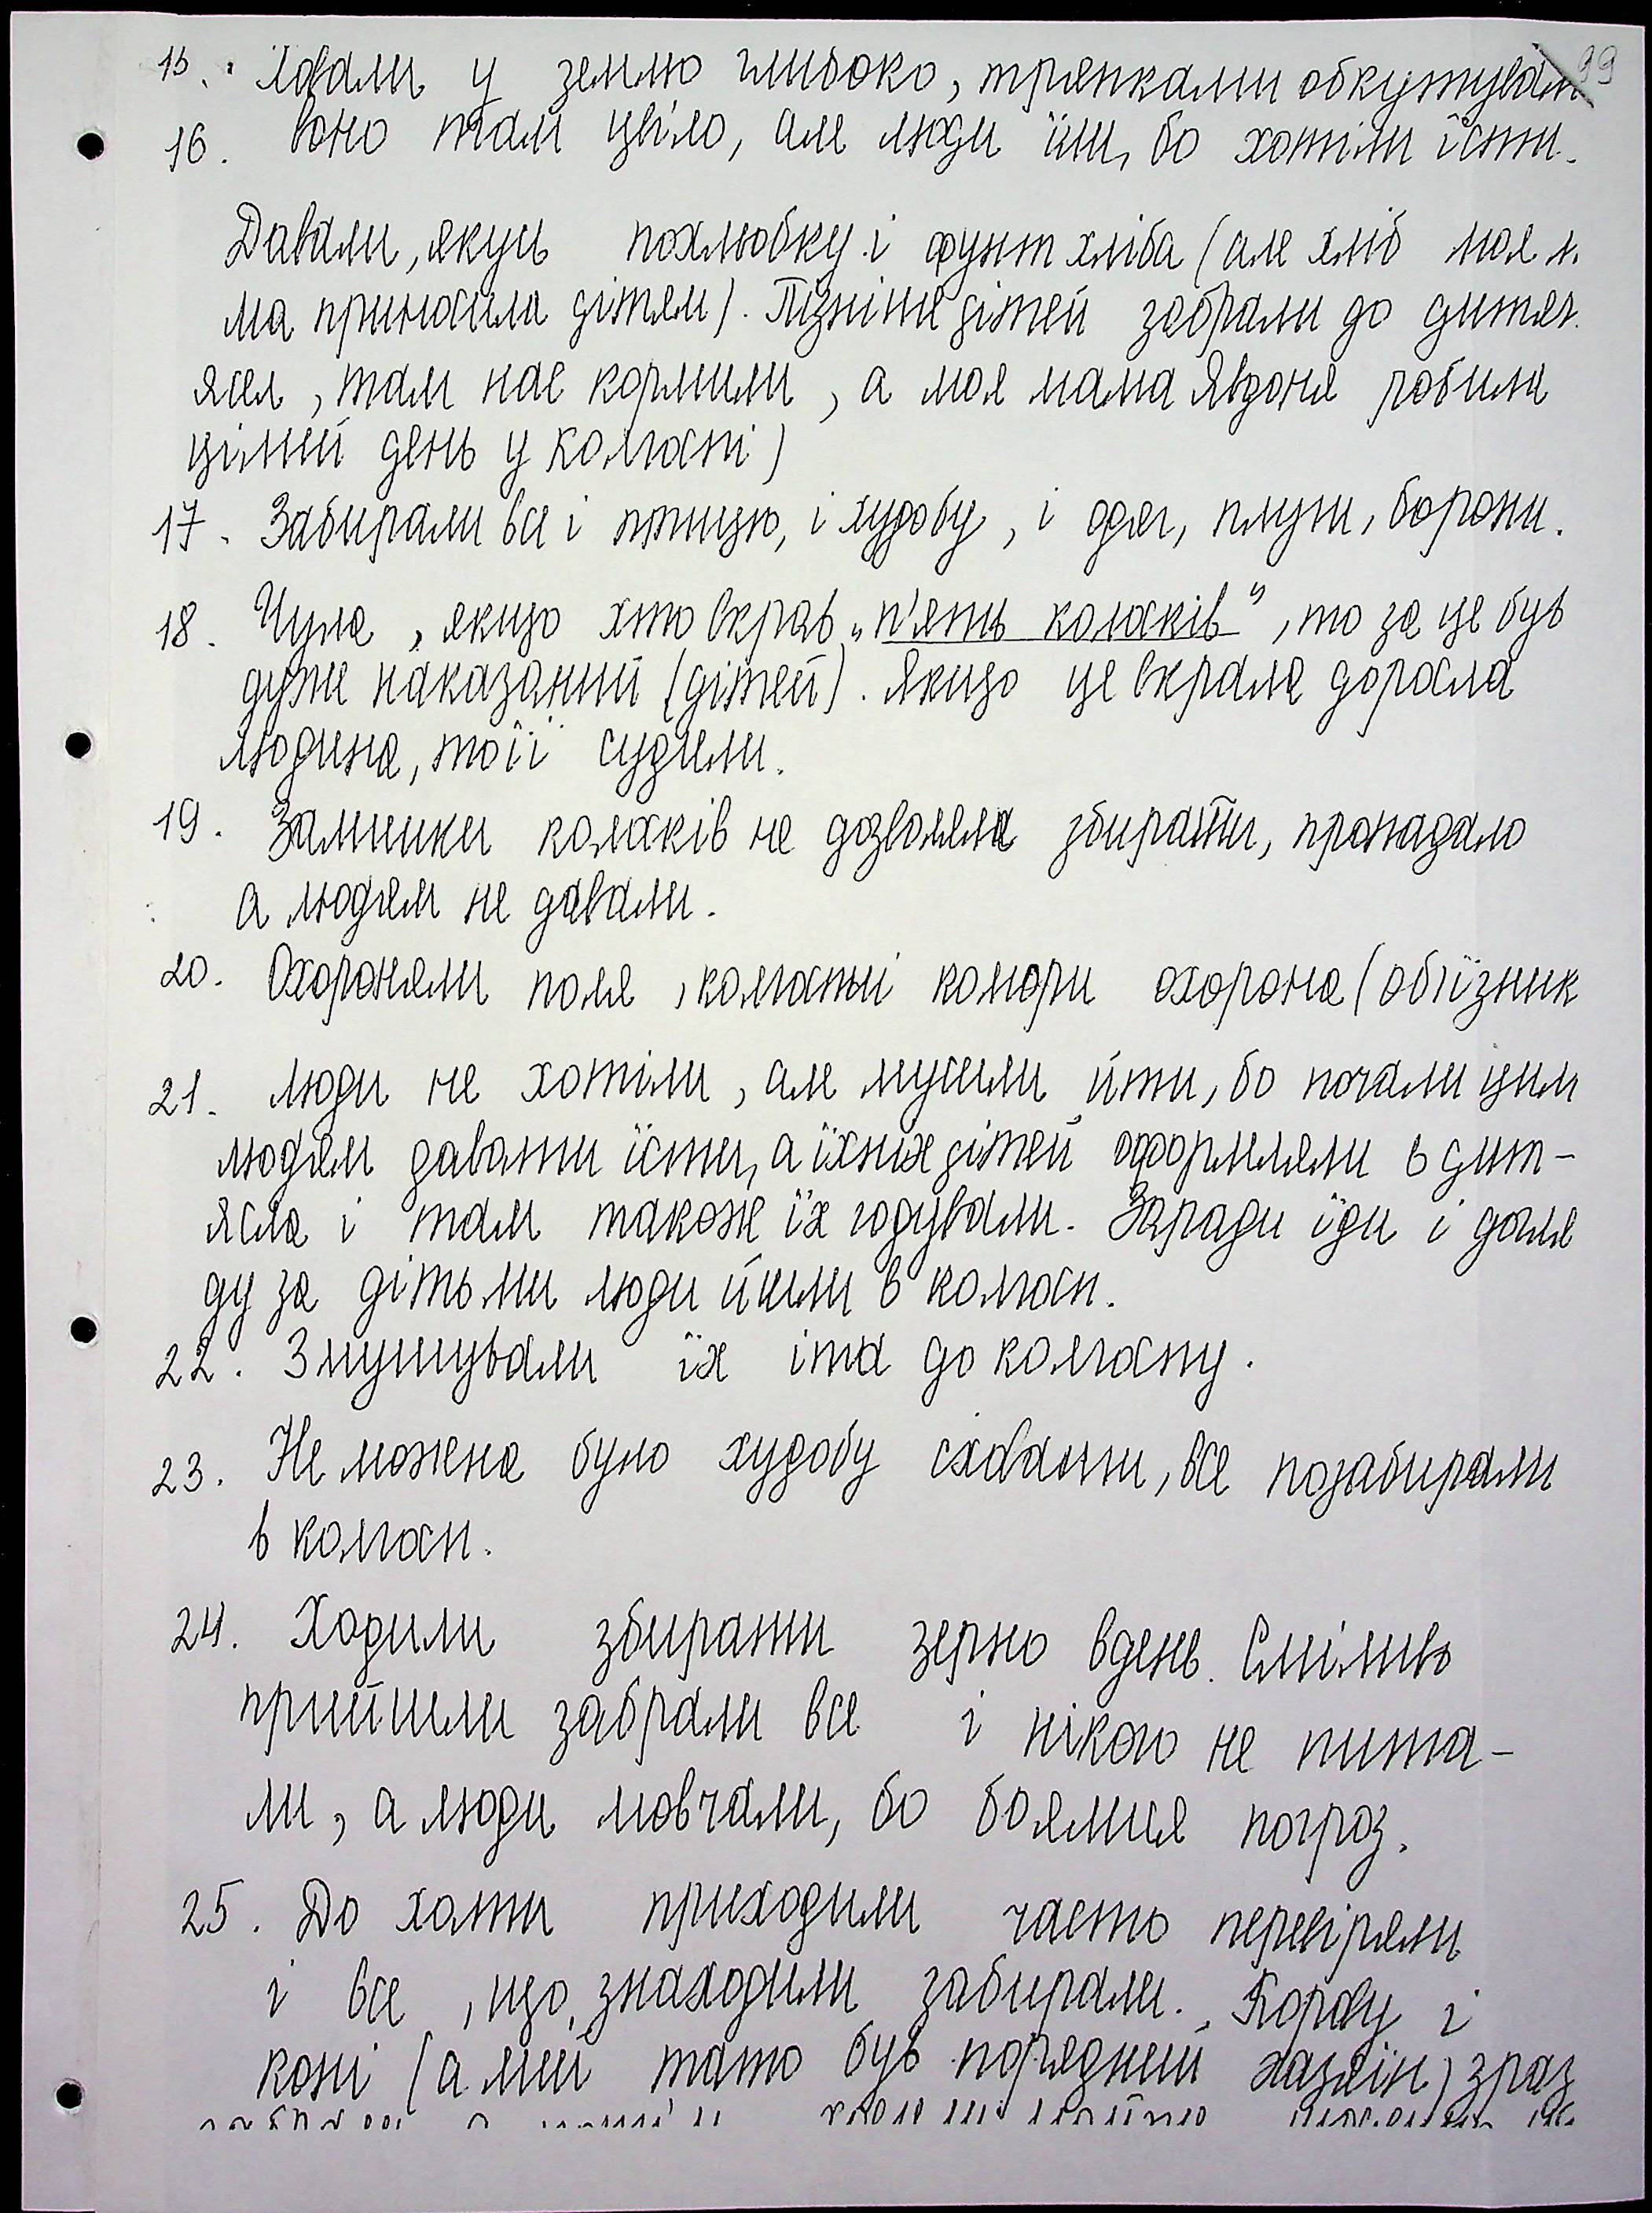 15. Ховали у землю глибоко, тряпками обкутували 99
16. воно там цвіло, але люди їли, бо хотіли їсти.
Давали, якусь похльобку і фунт хліба (але хліб моя м.
ма приносила дітям). Пізніше дітей забрали до дитяч.
ясел, там нас кормили, а моя мама Явдоня робила
цілий день у колгоспі)
17. Забирали все і птицю, і худобу, і одяг, плуги, борони.
18. Чула, якщо хто вкрав „п'ять колосків", то за це був
дуже наказаний (дітей). Якщо це вкрала доросла
людина, то її судили.
19. Залишки колосків не дозволяли збирати, пропадало
а людям не давали.
20. Охороняли поля, колгоспні комори охорона (обїзник
21. Люди не хотіли, але мусили йти, бо почали цим
людям давати їсти, а їхніх дітей оформляли в дит-
ясла і там також їх годували. Заради їди і догля
ду за дітьми люди йшли в колгосп.
22. Змушували їх іти до колгоспу.
23. Не можна було худобу сховати, все позабирали
в колгосп.
24. Ходили збирати зерно вдень. Сміливо
прийшли забрали все і нікого не пита-
ли, а люди мовчали, бо боялися погроз.
25. До хати приходили часто перевіряли
і все, що знаходили забирали. Корову і
коні (а мій тато був порядний хазяїн) зраз